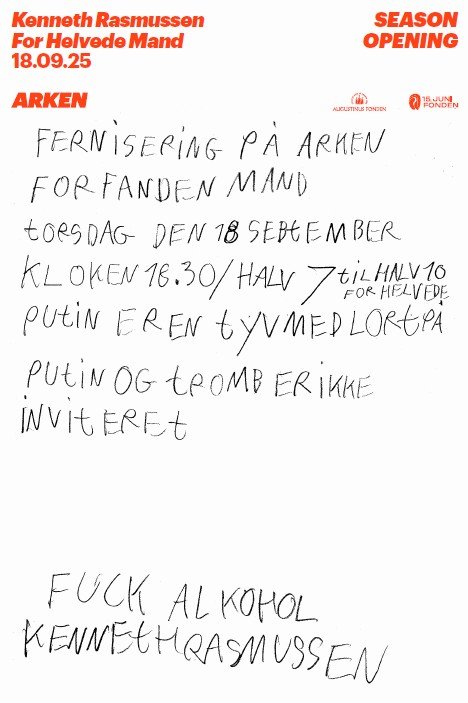 Kenneth Rasmussen
For Helvede Mand
18.09.25
SEASON
OPENING
ARKEN
AUGUSTINUS FONDEN
15. JUNI
FONDEN
FERNiSERiNG PÅ ARKEN
FOR FANDEN MAND
tORSDAG DEN 18 SEPtEMBER
KLOKEN 18.30/HALV 7 tiL HALV 10
FOR HELVEDE
PUtiN ER EN tYV MED LORt PÅ
PUtiN OG tROMB ER IKKE
iNVitEREt
FUCK ALKOHOL
KENNEtH RASMUSSEN